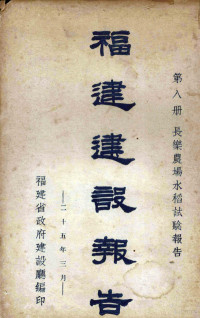 第八册 長樂農場水稻試驗報告
福建建設報告
—二十五年三月—
福建省政府建設廳編印